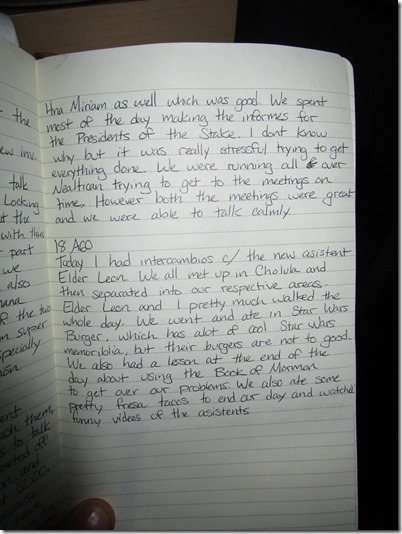 the
ew inv
talk
Looking
at the
with this
part
we
also
ana
of the two
m super
specially
ach them,
to talk
12:00.
Hna Miriam as well which was good. We spent
most of the day making the informes for
the Presidents of the Stake. I dont know
why but it was really stressful trying to get
everything done. We were running all over
Nealtican trying to get to the meetings on
time. However both the meetings were great
and we were able to talk calmly.
18 AGO
Today I had intercambios c/ the new asistent
Elder Leon. We all met up in Cholula and
then separated into our respective areas.
Elder Leon and I pretty much walked the
whole day. We went and ate in Star Wars
Burger, which has alot of cool Star Wars
memoriblia, but their burgers are not to good.
We also had a lesson at the end of the
day about using the Book of Mormon
to get over our problems. We also ate some
pretty fresa tacos to end our day and watched
funny videos of the asistents